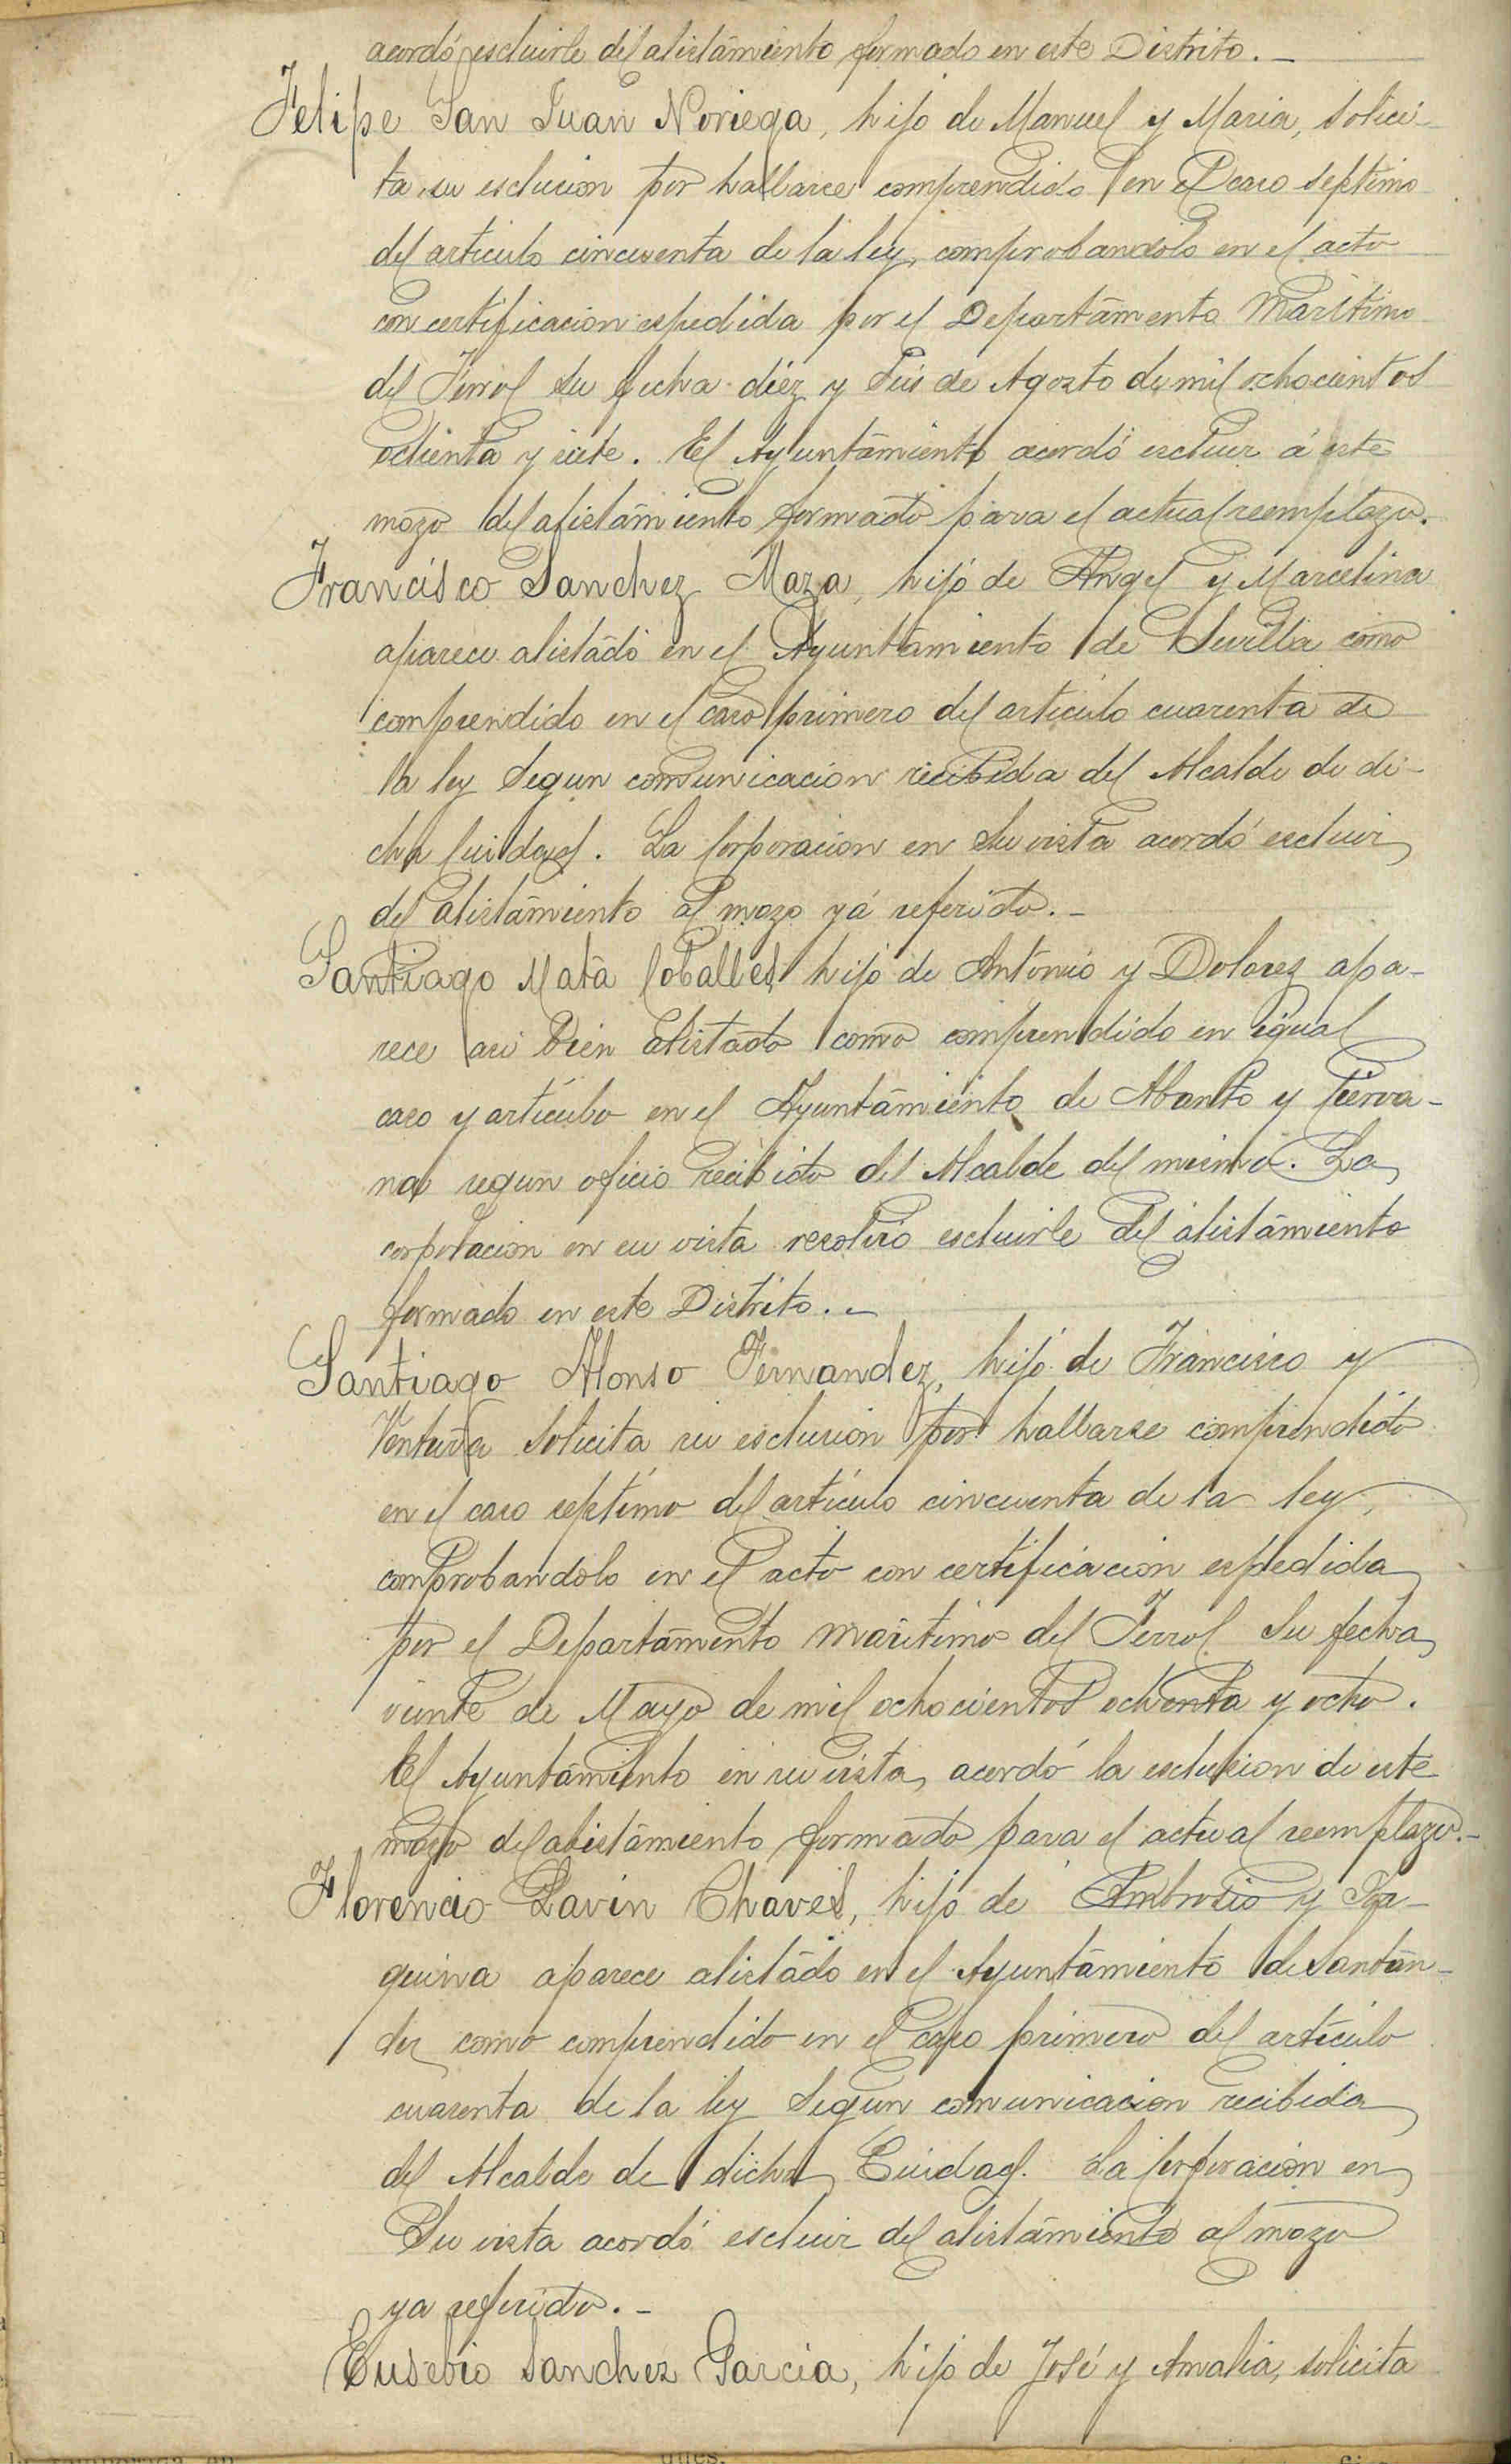 acordó escluirle del alistamiento formado en este Distrito. _
Felipe San Juan Noriega, hijo de Manuel y Maria, solici-
ta su esclucion por hallarce comprendido en el caso septimo
del articulo cincuenta de la ley, comprobandolo en el acto
con certificacion espedida por el Departamento Maritimo
del Ferrol su fecha diez y seis de Agosto de mil ochocientos
ochenta y siete. El Ayuntamiento acordó escluir á este
mozo del alistamiento formado para el actual reemplazo.
Francisco Sanchez Maza, hijo de Angel y Marcelina
aparece alistado en el Ayuntamiento de Sevilla como
comprendido en el caso primero del articulo cuarenta de
la ley segun comunicacion recibida del Alcalde de di-
cha Ciudad. La Corporacion en su vista acordó escluir
del alistamiento al mozo yá referido. _
Santiago Mata Coballes hijo de Antonio y Dolores apa-
rece asi bien alistado como comprendido en igual
caso y artículo en el Ayuntamiento de Abanto y Cierva-
na segun oficio recibido del Alcalde del mismo. La
corporacion en su vista resolvió escluirle del alistamiento
formado en este Distrito. _
Santiago Alonso Fernandez, hijo de Francisco y
Ventura solicita su esclusion por hallarse comprendido
en el caso septimo del artículo cincuenta de la ley,
comprobandolo en el acto con certificacion espedida
por el Departamento maritimo del Ferrol su fecha
veinte de Mayo de mil ochocientos ochenta y ocho.
El Ayuntamiento en su vista, acordó la esclusion de este
mozo del alistamiento formado para el actual reemplazo. _
Florencio Lavin Chaves, hijo de Ambrosio y Joa-
quina aparece alistado en el Ayuntamiento de Santan-
der como comprendido en el caso primero del artículo
cuarenta de la ley segun comunicacion recibida
del Alcalde de dicha Ciudad. La Corporacion en
su vista acordó escluir del alistamiento al mozo
ya referido. _
Eusebio Sanchez Garcia, hijo de José y Amalia, solicita